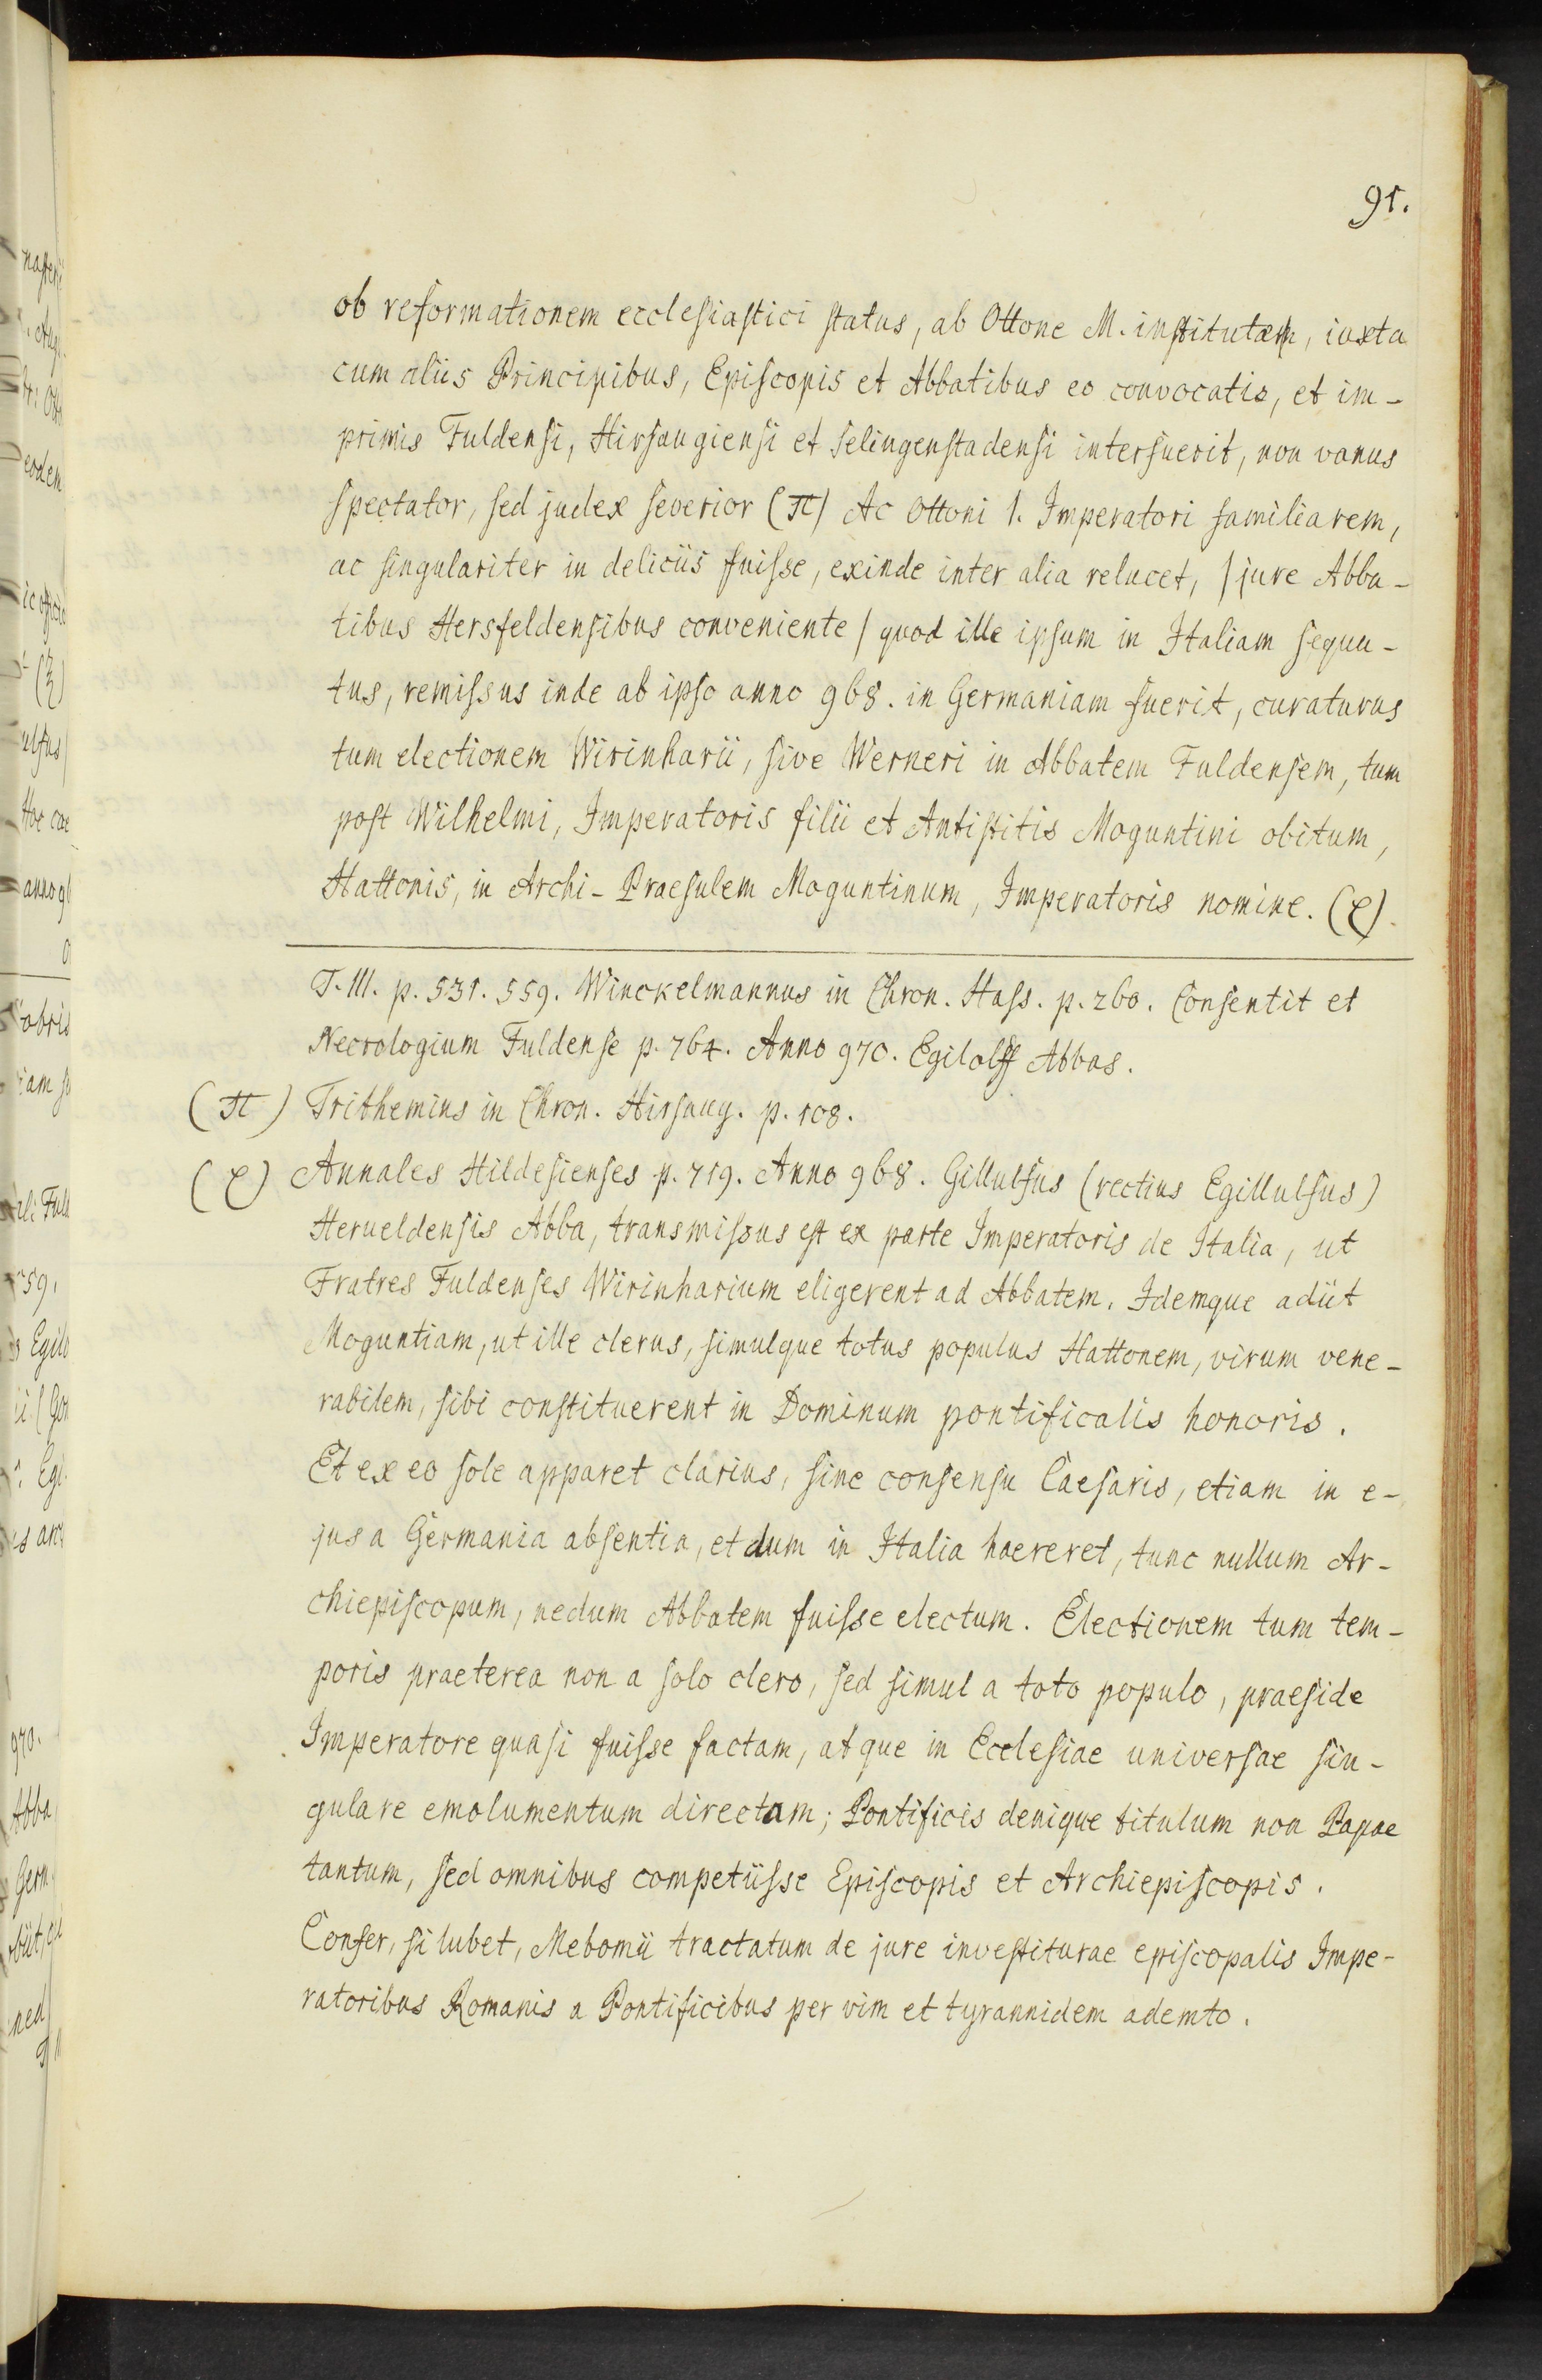 91.
ob reformationem ecclesiastici status, ab Ottone M. institutam, iuxta
cum aliis Principibus, Episcopis et Abbatibus eo convocatis, et im-
primis Fuldensi, Hirsaugiensi et Selingenstadensi interfuerit, non vanus
spectator, sed judex severior (π) Ac Ottoni I. Imperatori familiarem,
ac singulariter in deliciis fuisse, exinde inter alia relucet, / jure Abba-
tibus Hersfeldensibus conveniente / quod ille ipsum in Italiam sequu-
tus, remissus inde ab ipso anno 968. in Germaniam fuerit, curaturus
tum electionem Wirinharii, sive Werneri in Abbatem Fuldensem, tum
post Wilhelmi, Imperatoris filii et Antistitis Moguntini obitum,
Hattonis, in Archi-Praesulem Moguntinum, Imperatoris nomine. (ρ).
T. III. p. 531. 559. Winckelmannus in Chron. Hass. p. 260. Consentit et
Necrologium Fuldense p. 764. Anno 970. Egilolff Abbas.
(π) Trithemius in Chron. Hirsaug. p. 108.
(ρ) Annales Hildesienses p. 719. Anno 968. Gillulfus (rectius Egillulfus)
Herueldensis Abba, transmissus est ex parte Imperatoris de Italia, ut
Fratres Fuldenses Wirinharium eligerent ad Abbatem. Idemque adiit
Moguntiam, ut ille clerus, simulque totus populus Hattonem, virum vene-
rabilem, sibi constituerent in Dominum pontificalis honoris.
Et ex eo sole apparet clarius, sine consensu Caesaris, etiam in e-
jus a Germania absentia, et dum in Italia haereret, tunc nullum Ar-
chiepiscopum, nedum Abbatem fuisse electum. Electionem tum tem-
poris praeterea non a solo clero, sed simul a toto populo, praeside
Imperatore quasi fuisse factam, atque in Ecclesiae universae sin-
gulare emolumentum directam; Pontificis denique titulum non Papae
tantum, sed omnibus competiisse Episcopis et Archiepiscopis.
Confer, si lubet, Mebomii tractatum de jure investiturae episcopalis Impe-
ratoribus Romanis a Pontificibus per vim et tyrannidem ademto.